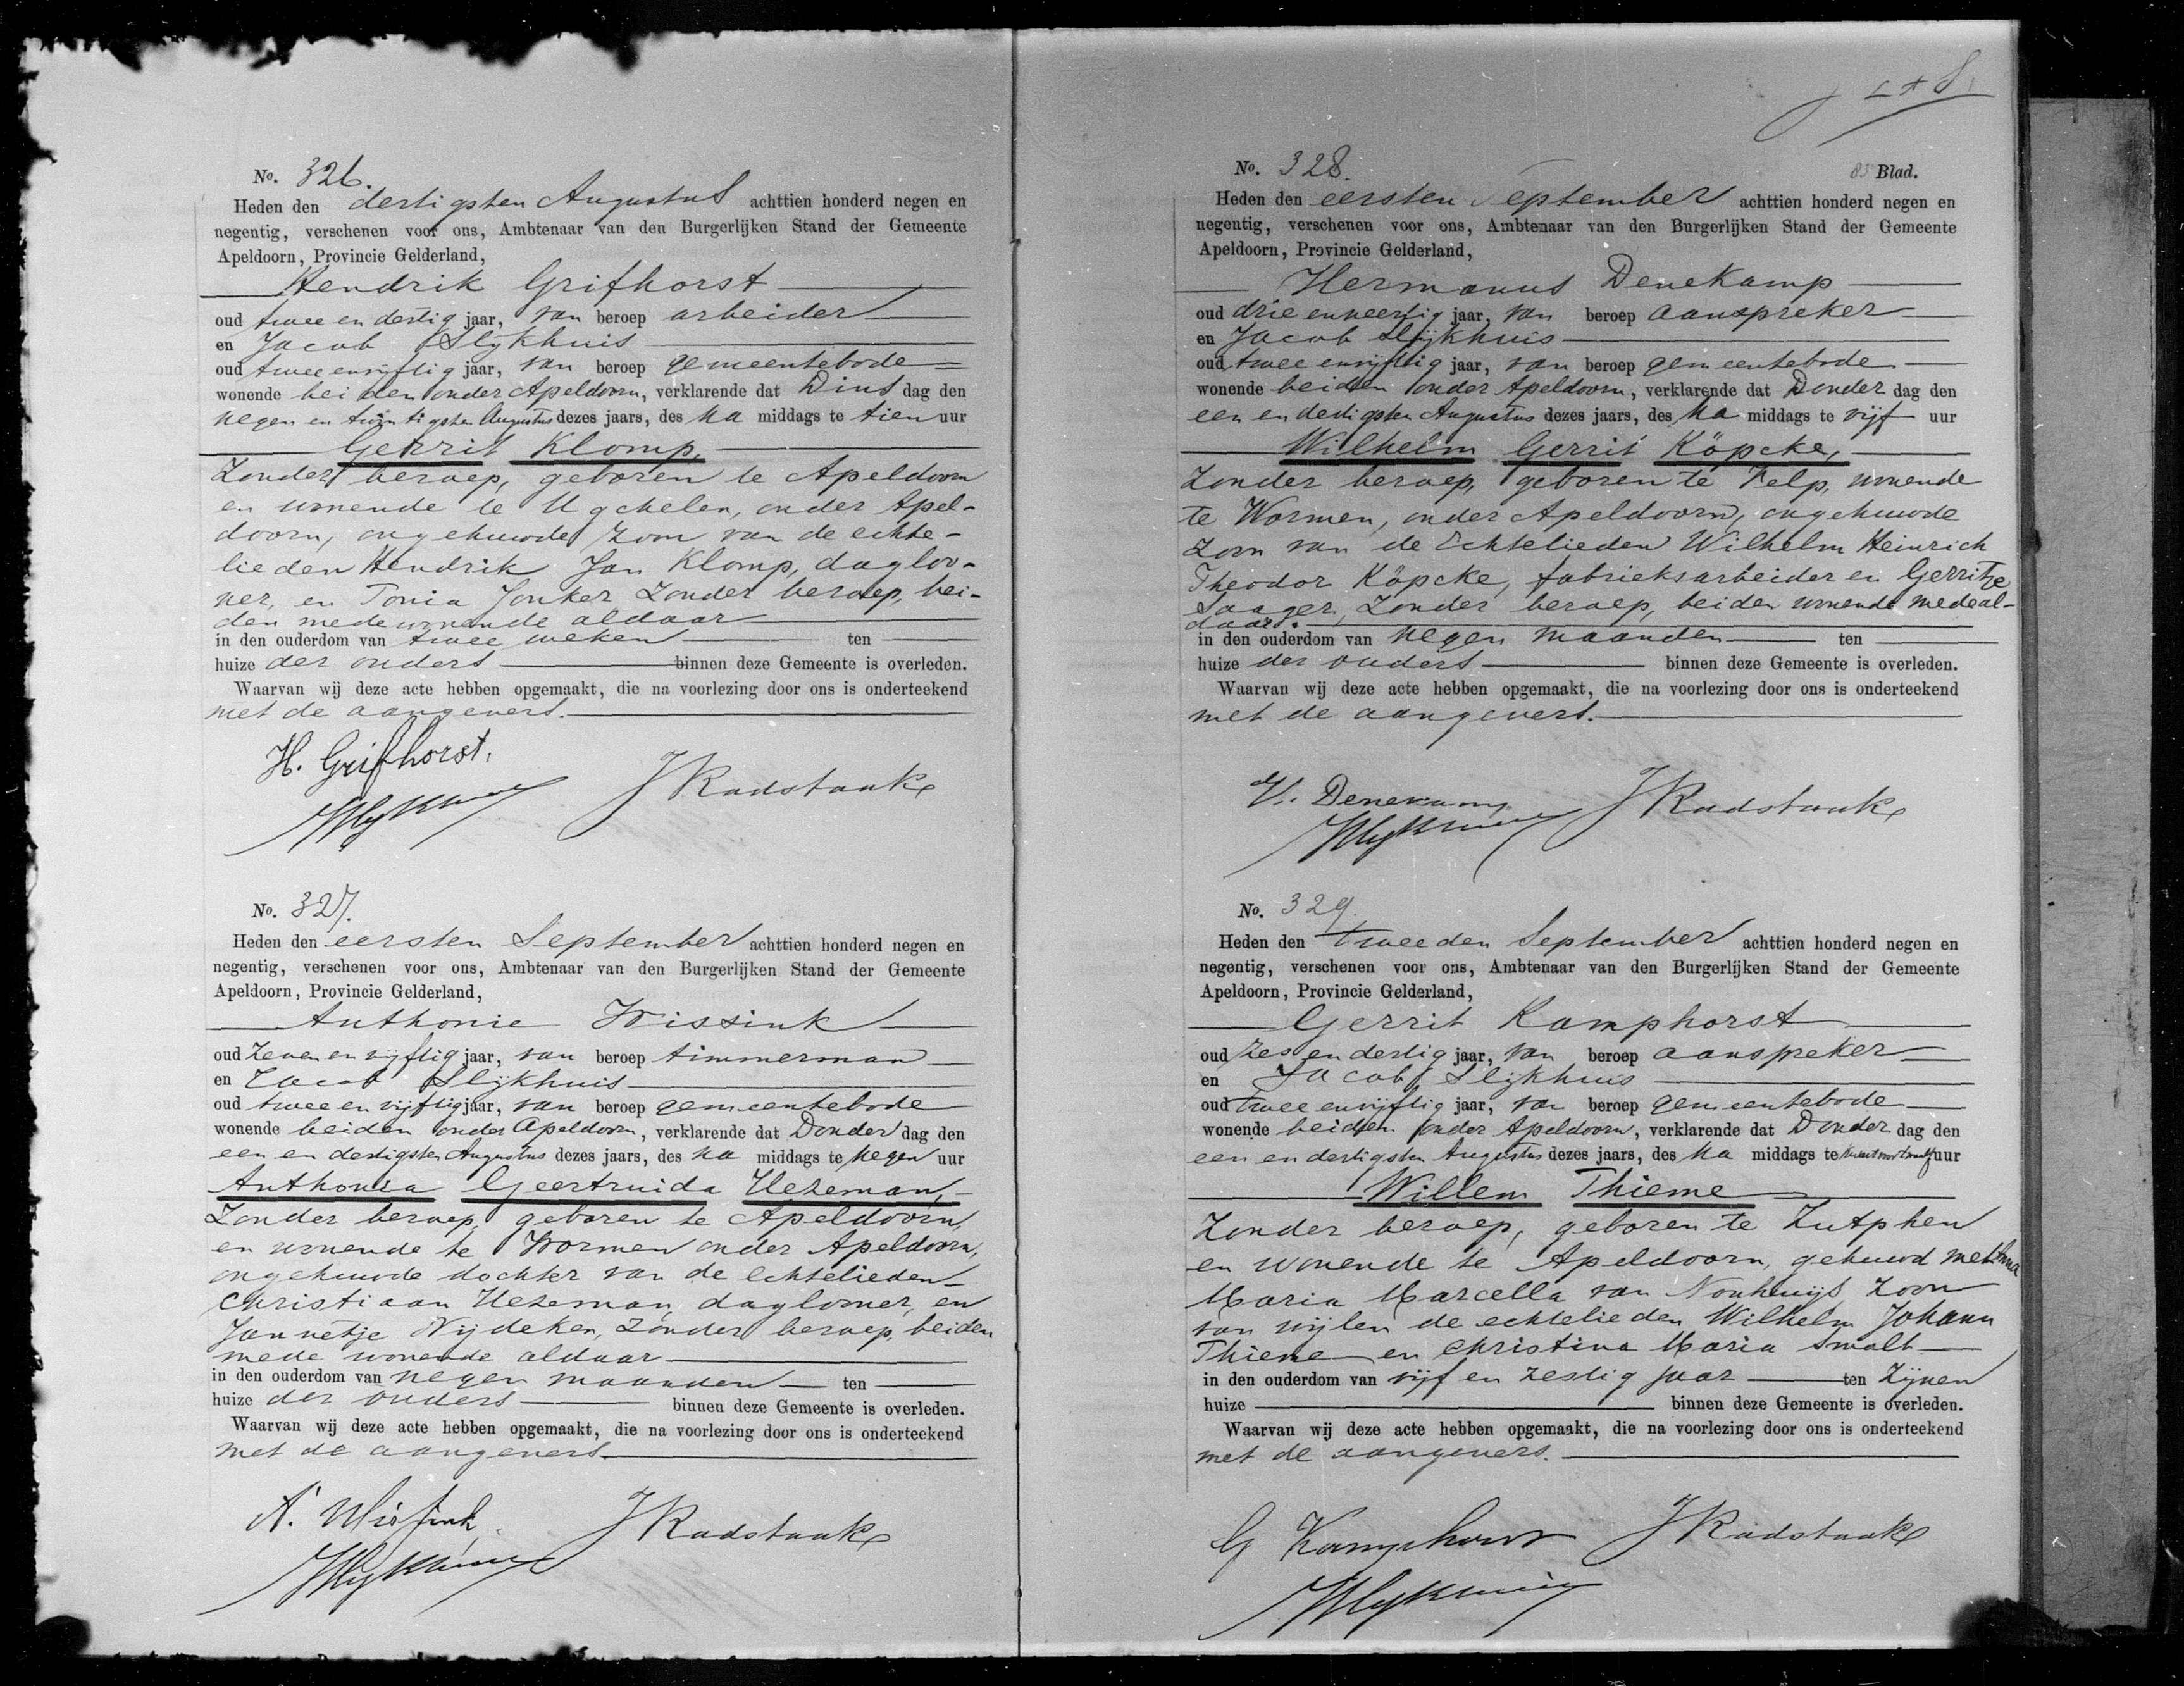 No. 326.
Heden den dertigsten Augustus achttien honderd negen en
negentig, verschenen voor ons, Ambtenaar van den Burgerlijken Stand der Gemeente
Apeldoorn, Provincie Gelderland,
Hendrik Grifhorst
oud twee en dertig jaar, van beroep arbeider
en Jacob Slijkhuis
oud twee en vijftig jaar, van beroep gemeentebode
wonende beiden onder Apeldoorn, verklarende dat Dins dag den
negen en twintigsten Augustus dezes jaars, des na middags te tien uur
Gerrit Klomp,
zonder beroep, geboren te Apeldoorn
en wonende te Ugchelen, onder Apel-
doorn, ongehuwde zoon van de echte-
lieden Hendrik Jan Klomp, dagloo-
ner, en Tonia Jonker zonder beroep, bei-
den medewonende aldaar
in den ouderdom van twee weken ten
huize der ouders binnen deze Gemeente is overleden.
Waarvan wij deze acte hebben opgemaakt, die na voorlezing door ons is onderteekend
met de aangevers.
H. Grifhorst.
JSlijkhuis JRadstaake
No. 327.
Heden den eersten September achttien honderd negen en
negentig, verschenen voor ons, Ambtenaar van den Burgerlijken Stand der Gemeente
Apeldoorn, Provincie Gelderland,
Anthonie Wissink
oud zeven en vijftig jaar, van beroep timmerman
en Jacob Slijkhuis
oud twee en vijftig jaar, van beroep gemeentebode
wonende beiden onder Apeldoorn, verklarende dat Donder dag den
een en dertigsten Augustus dezes jaars, des na middags te negen uur
Anthonia Geertruida Uezeman,
zonder beroep, geboren te Apeldoorn,
en wonende te Wormen onder Apeldoorn,
ongehuwde dochter van de echtelieden
Christiaan Uezeman, daglooner, en
Jannetje Nijdeken, zonder beroep, beiden
mede wonende aldaar
in den ouderdom van negen maanden ten
huize der ouders binnen deze Gemeente is overleden.
Waarvan wij deze acte hebben opgemaakt, die na voorlezing door ons is onderteekend
met de aangevers.
A. Wissink JRadstaake
JSlijkhuis
No. 328. 83 Blad.
Heden den eersten September achttien honderd negen en
negentig, verschenen voor ons, Ambtenaar van den Burgerlijken Stand der Gemeente
Apeldoorn, Provincie Gelderland,
Hermanus Denekamp
oud drie en veertig jaar, van beroep aanspreker
en Jacob Slijkhuis
oud twee en vijftig jaar, van beroep gemeentebode
wonende beiden onder Apeldoorn, verklarende dat Donder dag den
een en dertigsten Augustus dezes jaars, des na middags te vijf uur
Wilhelm Gerrit Köpcke,
zonder beroep, geboren te Velp, wonende
te Wormen, onder Apeldoorn, ongehuwde
zoon van de Echtelieden Wilhelm Heinrich
Theodor Köpcke, fabrieksarbeider en Gerritje
Saager, zonder beroep, beiden wonende medeal-
daar.
in den ouderdom van negen maanden ten
huize der ouders binnen deze Gemeente is overleden.
Waarvan wij deze acte hebben opgemaakt, die na voorlezing door ons is onderteekend
met de aangevers.
H. Denekamp JRadstaake
JSlijkhuis
No. 329.
Heden den tweeden September achttien honderd negen en
negentig, verschenen voor ons, Ambtenaar van den Burgerlijken Stand der Gemeente
Apeldoorn, Provincie Gelderland,
Gerrit Kamphorst
oud zes en dertig jaar, van beroep aanspreker
en Jacob Slijkhuis
oud twee en vijftig jaar, van beroep gemeentebode
wonende beiden onder Apeldoorn, verklarende dat Donder dag den
een en dertigsten Augustus dezes jaars, des na middags te kwart voor twaalf uur
Willem Thieme
zonder beroep, geboren te Zutphen
en wonende te Apeldoorn, gehuwd met Anna
Maria Marcella van Nouhuijs, zoon
van wijlen de echtelieden Wilhelm Johann
Thieme en Christina Maria Smalt
in den ouderdom van vijf en zestig jaar ten zijnen
huize binnen deze Gemeente is overleden.
Waarvan wij deze acte hebben opgemaakt, die na voorlezing door ons is onderteekend
met de aangevers.
G Kamphorst JRadstaake
JSlijkhuis